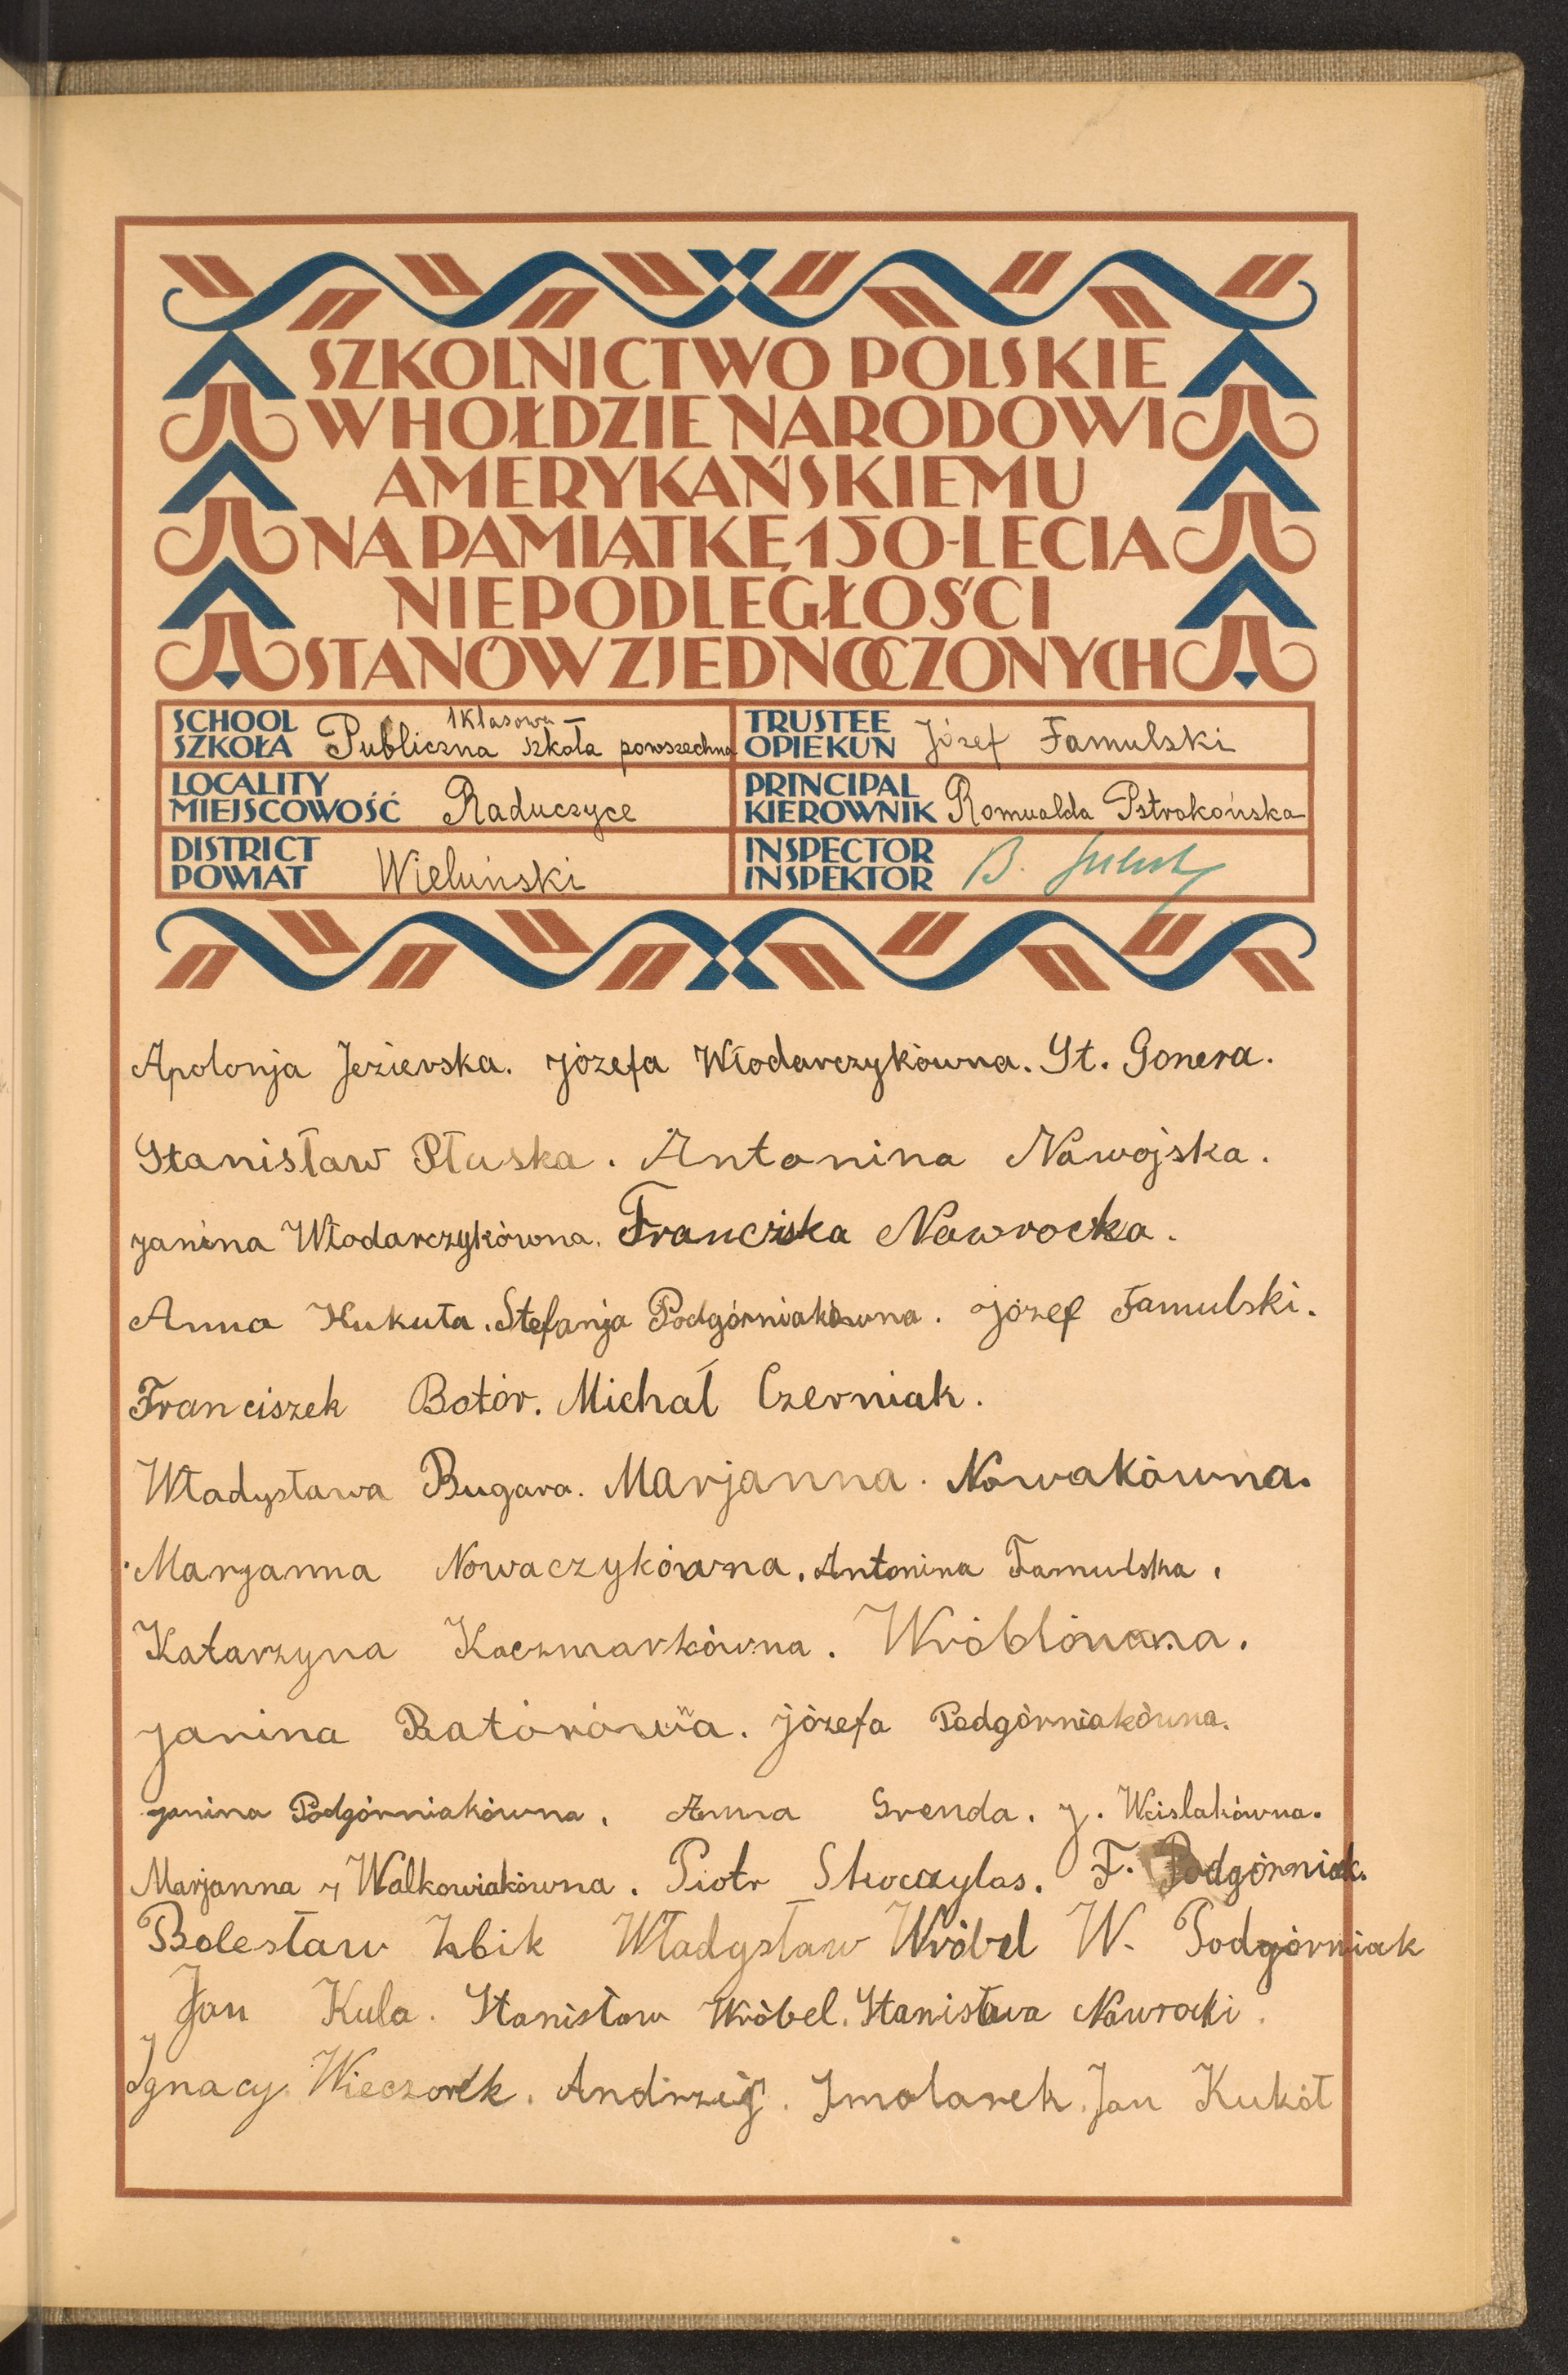 SZKOLNICTWO POLSKIE
W HOŁDZIE NARODOWI
AMERYKAŃSKIEMU
NA PAMIĄTKĘ 150-LECIA
NIEPODLEGŁOŚCI
STANÓW ZJEDNOCZONYCH
SCHOOL
SZKOŁA
1 Klasowa
Publiczna szkoła powszechna
TRUSTEE
OPIEKUN
Józef Famulski
LOCALITY
MIEJSCOWOŚĆ
Raduczyce
PRINCIPAL
KIEROWNIK
Romualda Pstrokońska
DISTRICT
POWIAT
Wieluński
INSPECTOR
INSPEKTOR
B.
Apolonja Jezierska. Józefa Włodarczykówna. St. Gonera.
Stanisław Płuska. Antonina Nawojska.
Janina Włodarczykówna. Franciska Nawrocka.
Anna Kukuła. Stefanja Podgórniakówna. Józef Famulski.
Franciszek Botór. Michał Czerniak.
Władysława Bugara. Marjanna. Nowakówna.
Marjanna Nowaczykówna. Antonina Famulska.
Katarzyna Kaczmarkówna. Wróblówna.
Janina Ratórówna. Józefa Podgórniakówna.
Janina Podgórniakówna. Anna Grenda. J. Wcislakówna.
Marjanna Walkowiakówna. Piotr Skoczylas. F. Podgórniak.
Bolesław Zbik Władysław Wróbel W. Podgórniak
Jan Kula. Stanisław Wróbel. Stanisława Nawrocki.
Ignacy Wieczorek. Andrzej. Smolarek. Jan Kukół